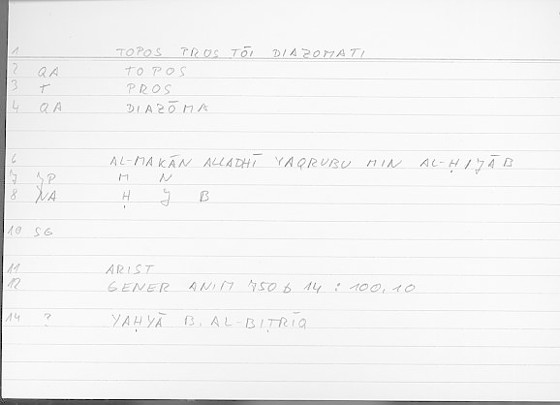 1 TOPOS PROS TŌI DIAZOMATI
2 QA TOPOS
3 T PROS
4 QA DIAZŌMA
6 AL-MAKĀN ALLADHĪ YAQRUBU MIN AL-ḤIJĀB
7 JP M N
8 NA Ḥ J B
10 SG
11 ARIST
12 GENER ANIM 750 b 14 : 100,10
14 ? YAḤYĀ B. AL-BIṬRĪQ